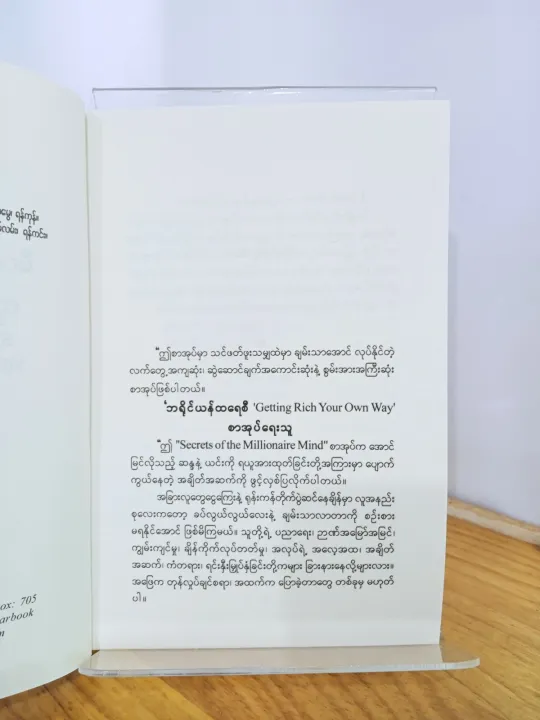 ရန်ကုန်။
ရန်ကင်း။
ox: 705
earbook
m
“ဤစာအုပ်မှာ သင်ဖတ်ဖူးသမျှထဲမှာ ချမ်းသာအောင် လုပ်နိုင်တဲ့
လက်တွေ့အကျဆုံး၊ ဆွဲဆောင်ချက်အကောင်းဆုံးနဲ့ စွမ်းအားအကြီးဆုံး
စာအုပ်ဖြစ်ပါတယ်။
‘ဘရိုင်ယန်ထရေစီ 'Getting Rich Your Own Way'
စာအုပ်ရေးသူ
“ဤ "Secrets of the Millionaire Mind" စာအုပ်က အောင်
မြင်လိုသည့် ဆန္ဒနဲ့ ယင်းကို ရယူအားထုတ်ခြင်းတို့အကြားမှာ ပျောက်
ကွယ်နေတဲ့ အချိတ်အဆက်ကို ဖွင့်လှစ်ပြလိုက်ပါတယ်။
အခြားလူတွေငွေကြေးနဲ့ ရုန်းကန်တိုက်ပွဲဆင်နေချိန်မှာ လူအနည်း
စုလေးကတော့ ခပ်လွယ်လွယ်လေးနဲ့ ချမ်းသာလာတာကို စဉ်းစား
မရနိုင်အောင် ဖြစ်မိကြမယ်။ သူတို့ရဲ့ ပညာရေး၊ ဉာဏ်အမြော်အမြင်၊
ကျွမ်းကျင်မှု၊ ချိန်ကိုက်လုပ်တတ်မှု၊ အလုပ်ရဲ့ အလေ့အထ၊ အချိတ်
အဆက်၊ ကံတရား၊ ရင်းနှီးမြှုပ်နှံခြင်းတို့ကများ ခြားနားနေလို့များလား။
အဖြေက တုန်လှုပ်ချင်စရာ၊ အထက်က ပြောခဲ့တာတွေ တစ်ခုမှ မဟုတ်
ပါ။